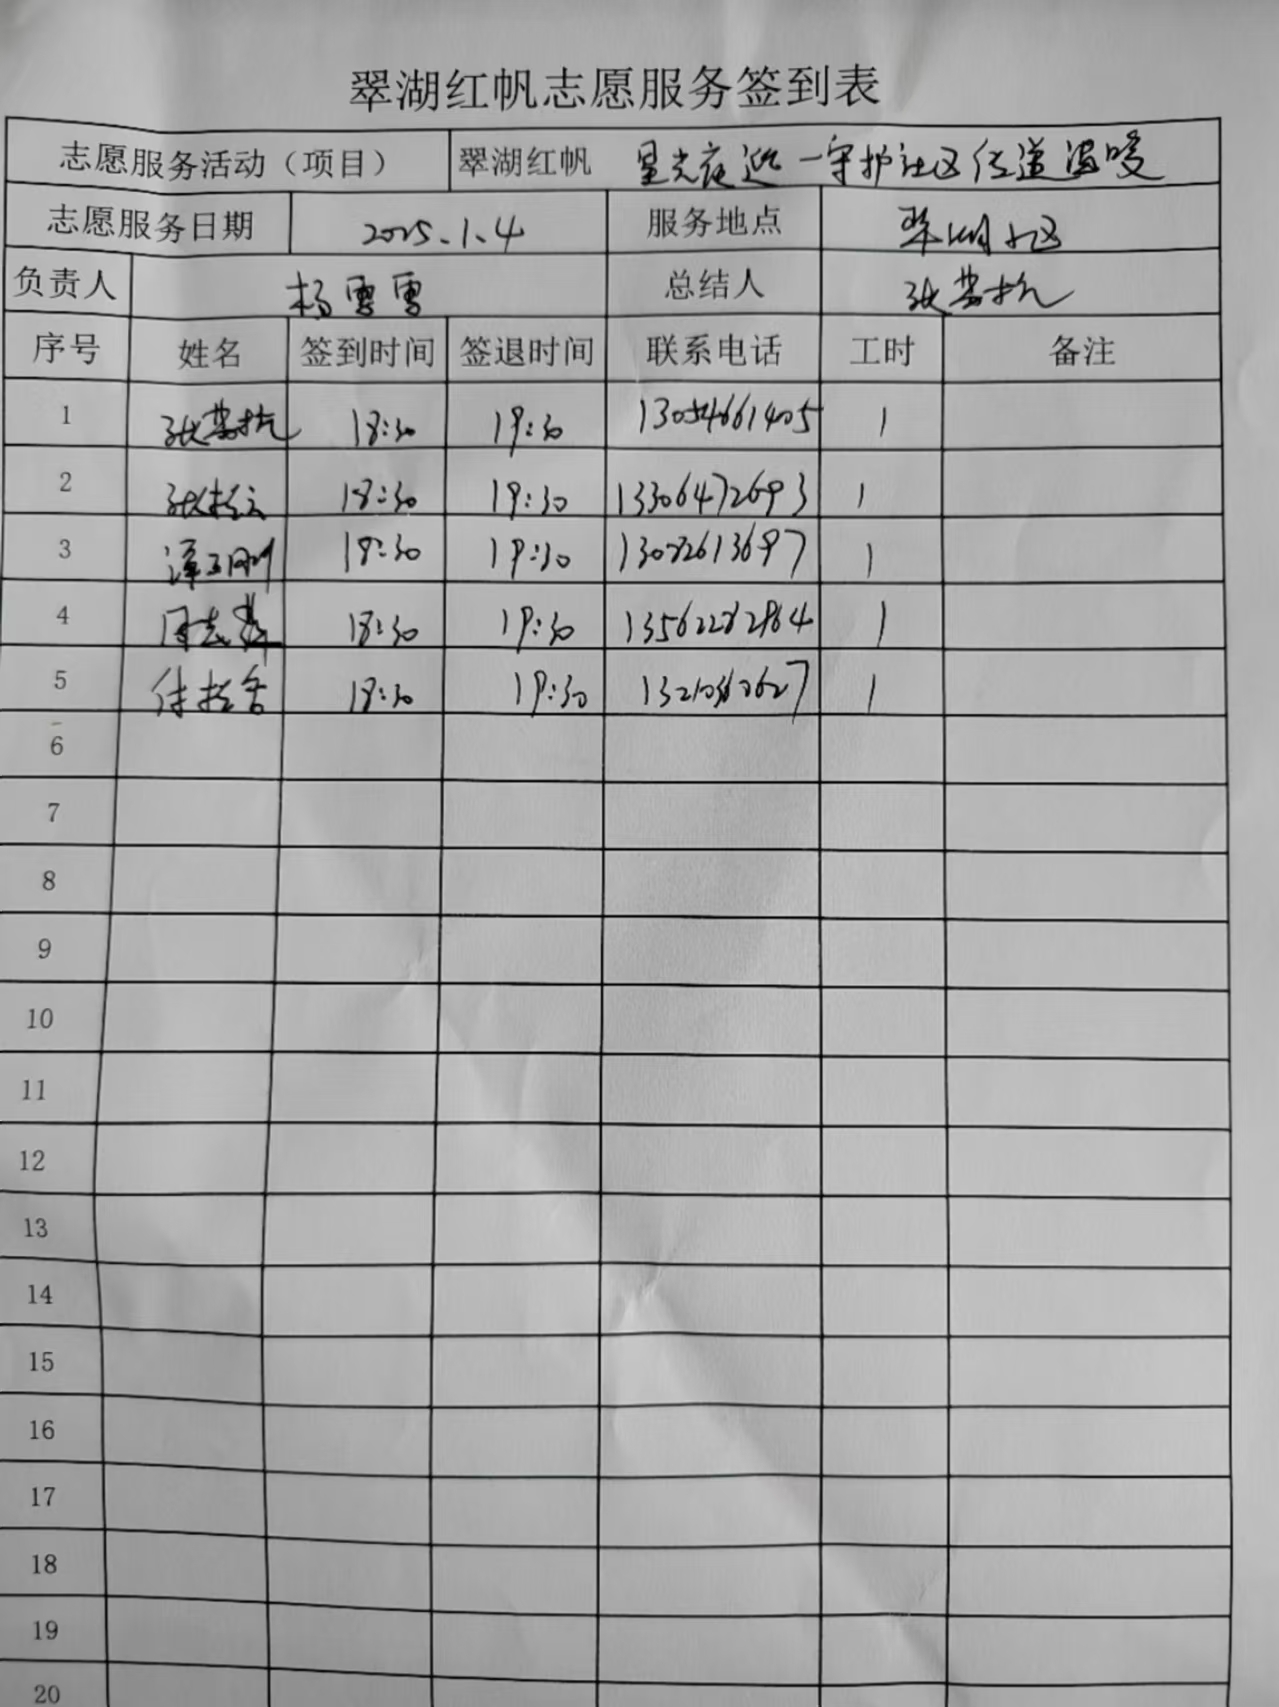 翠湖红帆志愿服务签到表
志愿服务活动（项目） 翠湖红帆 星光夜巡一守护社区街道温暖
志愿服务日期 2025.1.4 服务地点 翠湖小区
负责人 杨雪雪 总结人 张
序号 姓名 签到时间 签退时间 联系电话 工时 备注
1 张 18:30 19:30 13054661405 1
2 张 18:30 19:30 13306472693 1
3 18:30 19:30 1
4 周志 18:30 19:30 1
5 18:30 19:30 1
6
7
8
9
10
11
12
13
14
15
16
17
18
19
20